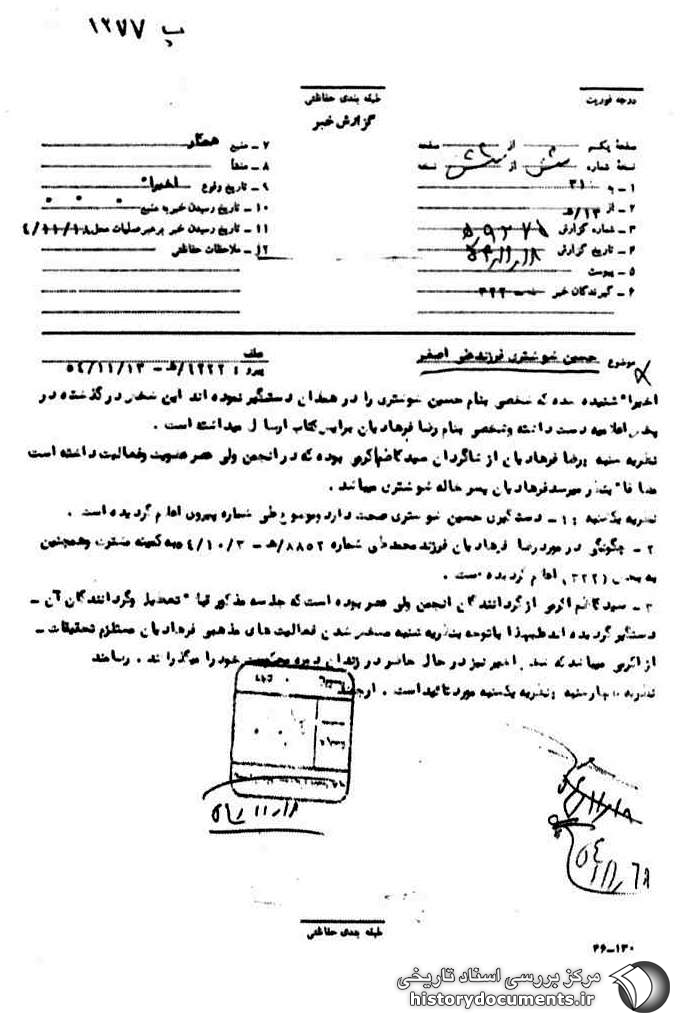 پ ۱۲۷۷
درجه فوریت
طبقه بندی حفاظتی
گزارش خبر
صفحهٔ یکم از صفحه
نسخهٔ شماره از نسخه
۱ - به ۳۱۰
۲ - از ۱۳/ه‍
۳ - شماره گزارش
۴ - تاریخ گزارش ۵۴/۱۱/۱۸
۵ - پیوست
۶ - گیرندگان خبر ۳۲۲
۷ - منبع همکار
۸ - منشأ
۹ - تاریخ وقوع اخیراً
۱۰ - تاریخ رسیدن خبر به منبع
۱۱ - تاریخ رسیدن خبر به رهبر عملیات محل ۴/۱۱/۱۸
۱۲ - ملاحظات حفاظتی
موضوع حسین شوشتری فرزند علی اصغر
عطف
پیرو : ۵۴/۱۱/۱۳
اخیراً شنیده شده که شخصی بنام حسین شوشتری را در همدان دستگیر نموده اند این شخص در گذشته در
پخش اعلامیه دست داشته و شخصی بنام رضا فرهادیان برایش کتاب ارسال میداشته است .
نظریه شنبه رضا فرهادیان از شاگردان سید کاظم اکرمی بوده که در انجمن ولی عصر عضویت و فعالیت داشته است
ضمناً بنظر میرسد فرهادیان پسر خاله شوشتری میباشد .
نظریه یکشنبه : ۱ - دستگیری حسین شوشتری صحت دارد و موضوع طی شماره پیروی اعلام گردیده است .
۲ - چگونگی در مورد رضا فرهادیان فرزند محمد علی شماره ۸۸۵۲/ه‍ - ۵۴/۱۰/۳ به کمیته مشترک و همچنین
به بخش (۳۲۲) اعلام گردیده است .
۳ - سید کاظم اکرمی از گردانندگان انجمن ولی عصر بوده است که جلسه مذکور قبلاً تعطیل و گردانندگان آن -
دستگیر گردیده اند علیهذا با توجه بنظریه شنبه مشخص شدن فعالیت های مذهبی فرهادیان مستلزم تحقیقات -
از اکرمی میباشد که شخص اخیر نیز در حال حاضر در زندان دوره محکومیت خود را میگذراند . رسامند
نظریه چهارشنبه نظریه یکشنبه مورد تائید است . ارجمند
۵۴/۱۱/۱۸
۵۴/۱۱/۱۸
طبقه بندی حفاظتی
۳۶-۱۳۰
مرکز بررسی اسناد تاریخی
historydocuments.ir